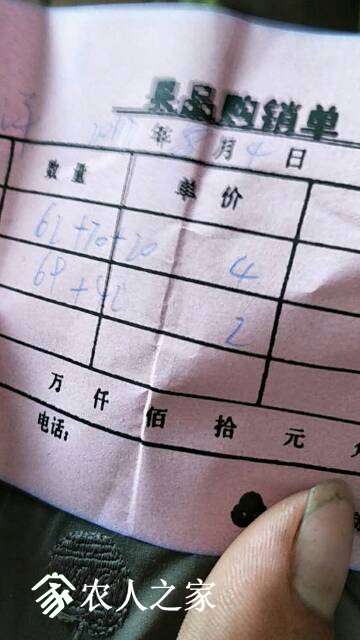 果品购销单
2017年8月4日
数量 单价
62+70+20 4
69+42 2
万仟佰拾元
电话:
农人之家